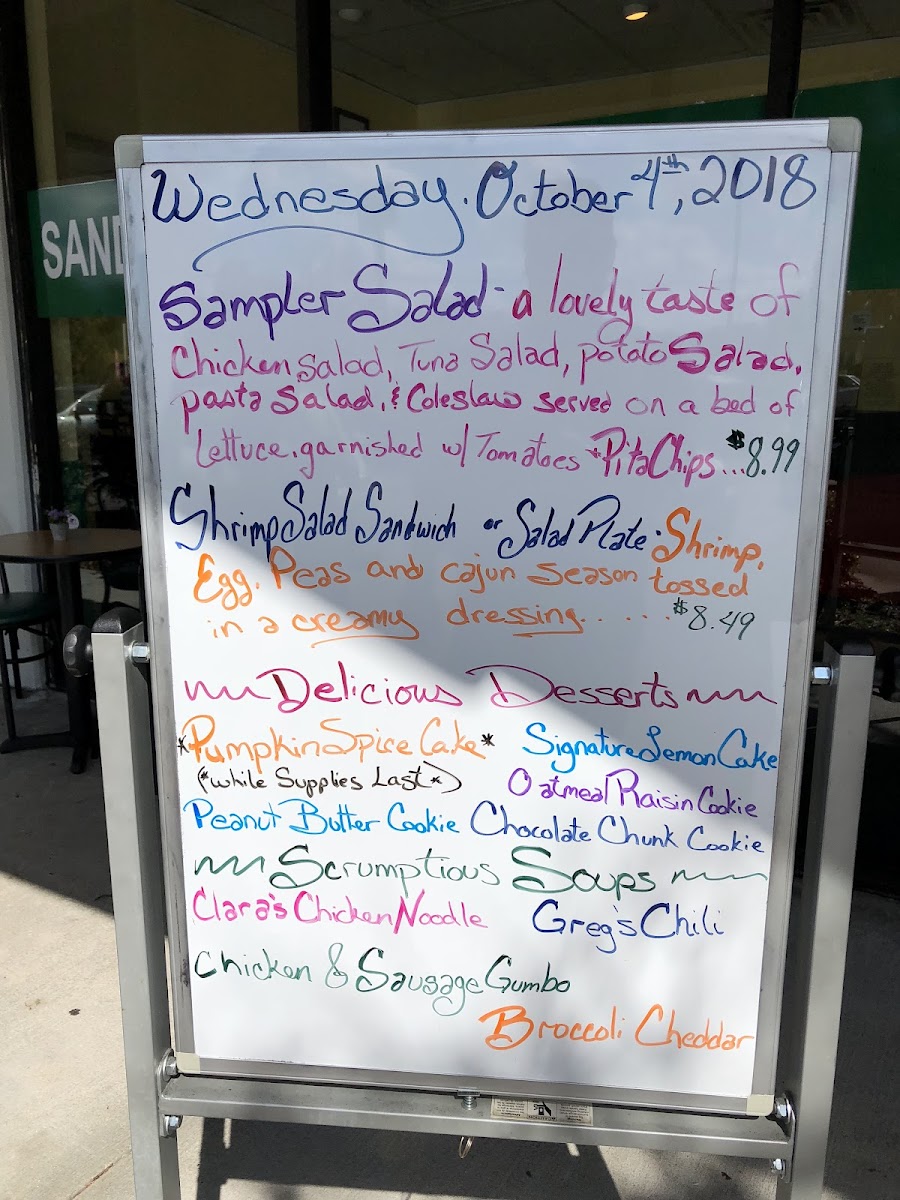 Wednesday. October 4th, 2018
SAND
Sampler Salad - a lovely taste of
Chicken salad, Tuna Salad, potato Salad,
pasta Salad, & Coleslaw served on a bed of
Lettuce. garnished w/ Tomatoes *Pita Chips... $8.99
Shrimp Salad Sandwich or Salad Plate. Shrimp,
Egg, Peas and cajun season tossed
in a creamy dressing...... $8.49
Delicious Desserts
*Pumpkin Spice Cake* Signature Lemon Cake
(*while Supplies Last*) Oatmeal Raisin Cookie
Peanut Butter Cookie Chocolate Chunk Cookie
Scrumptious Soups
Clara's Chicken Noodle Greg's Chili
Chicken & Sausage Gumbo
Broccoli Cheddar